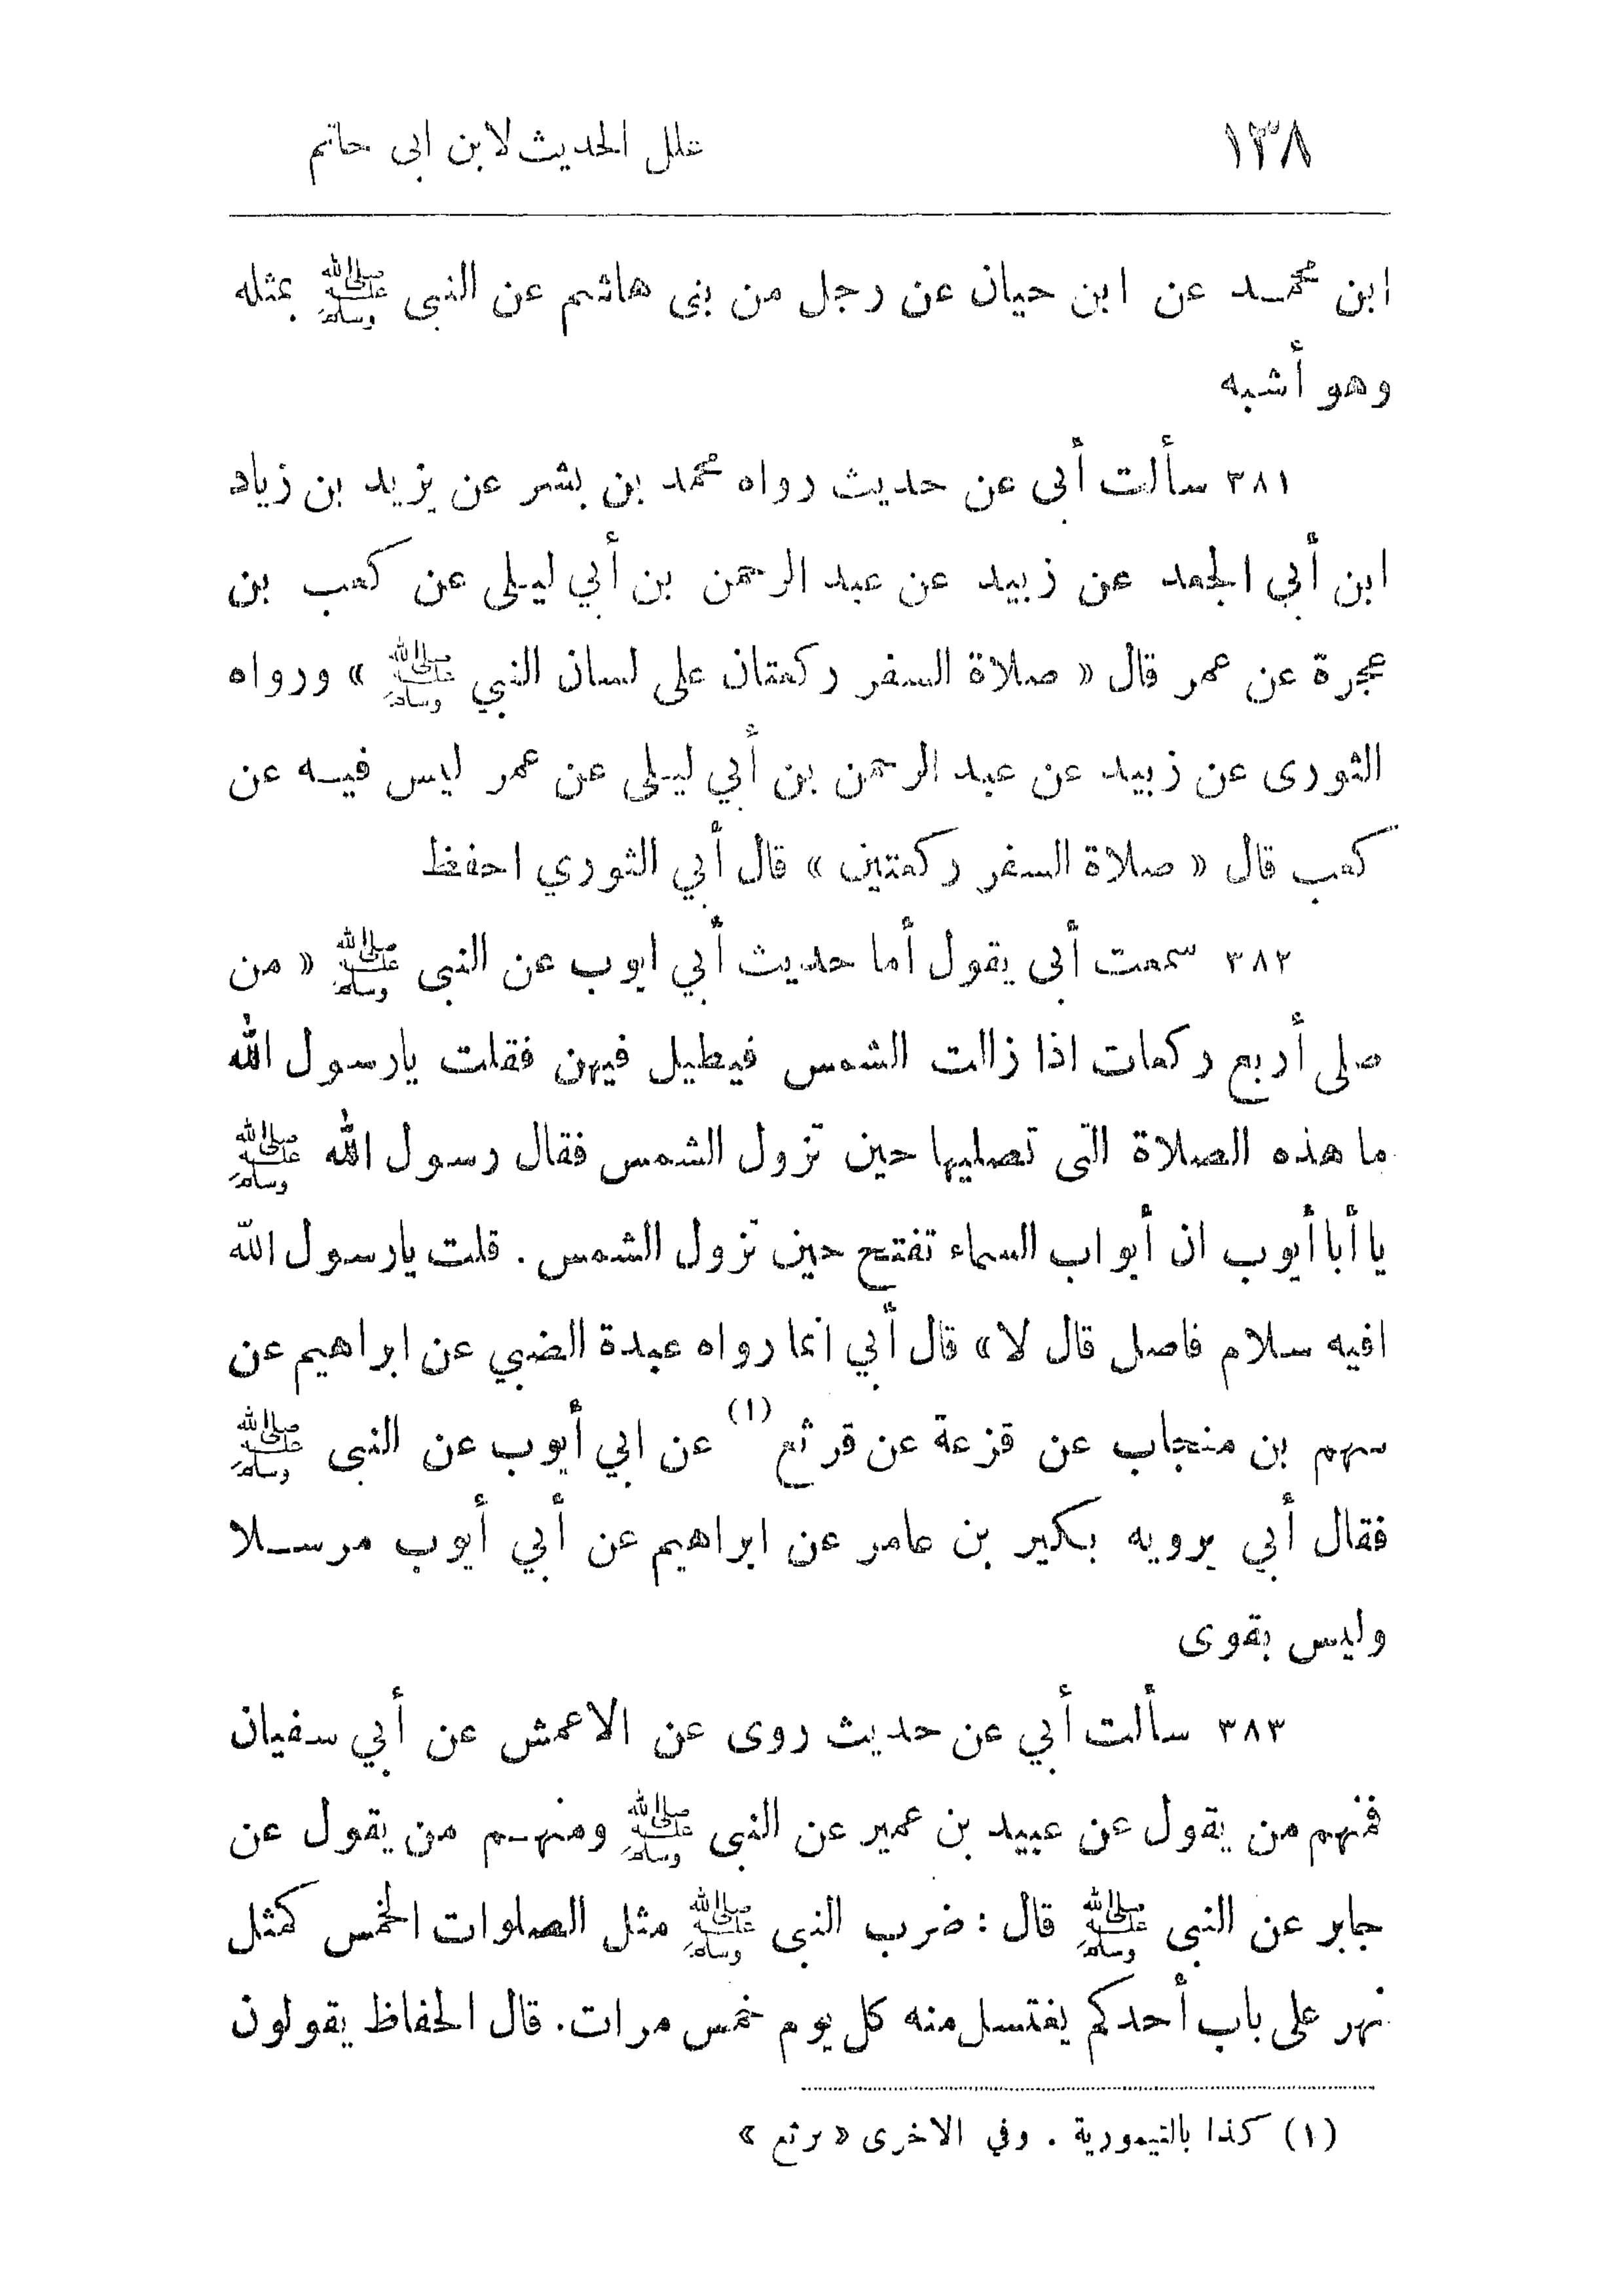 ١٣٨ علل الحديث لابن ابى حاتم
ابن محمد عن ابن حيان عن رجل من بنى هاشم عن النبى ﷺ بمثله
وهو أشبه
٣٨١ سألت أبى عن حديث رواه محمد بن بشر عن يزيد بن زياد
ابن أبي الجعد عن زبيد عن عبد الرحمن بن أبي ليلى عن كعب بن
عجرة عن عمر قال « صلاة السفر ركعتان على لسان النبي ﷺ » ورواه
الثورى عن زبيد عن عبد الرحمن بن أبي ليلى عن عمر ليس فيه عن
كعب قال « صلاة السفر ركعتين » قال أبي الثوري احفظ
٣٨٢ سمعت أبى يقول أما حديث أبي ايوب عن النبى ﷺ « من
صلى أربع ركعات اذا زالت الشمس فيطيل فيهن فقلت يارسول الله
ما هذه الصلاة التى تصليها حين تزول الشمس فقال رسول الله ﷺ
يا أبا أيوب ان أبواب السماء تفتح حين تزول الشمس . قلت يارسول الله
افيه سلام فاصل قال لا » قال أبي انما رواه عبدة الضبي عن ابراهيم عن
سهم بن منجاب عن قزعة عن قرثع (١) عن ابي أيوب عن النبى ﷺ
فقال أبي يرويه بكير بن عامر عن ابراهيم عن أبي أيوب مرسلا
وليس بقوى
٣٨٣ سألت أبي عن حديث روى عن الاعمش عن أبي سفيان
فمنهم من يقول عن عبيد بن عمير عن النبى ﷺ ومنهم من يقول عن
جابر عن النبى ﷺ قال : ضرب النبى ﷺ مثل الصلوات الخمس كمثل
نهر على باب أحدكم يغتسل منه كل يوم خمس مرات. قال الحفاظ يقولون
(١) كذا بالتيمورية . وفي الاخرى « برثع »